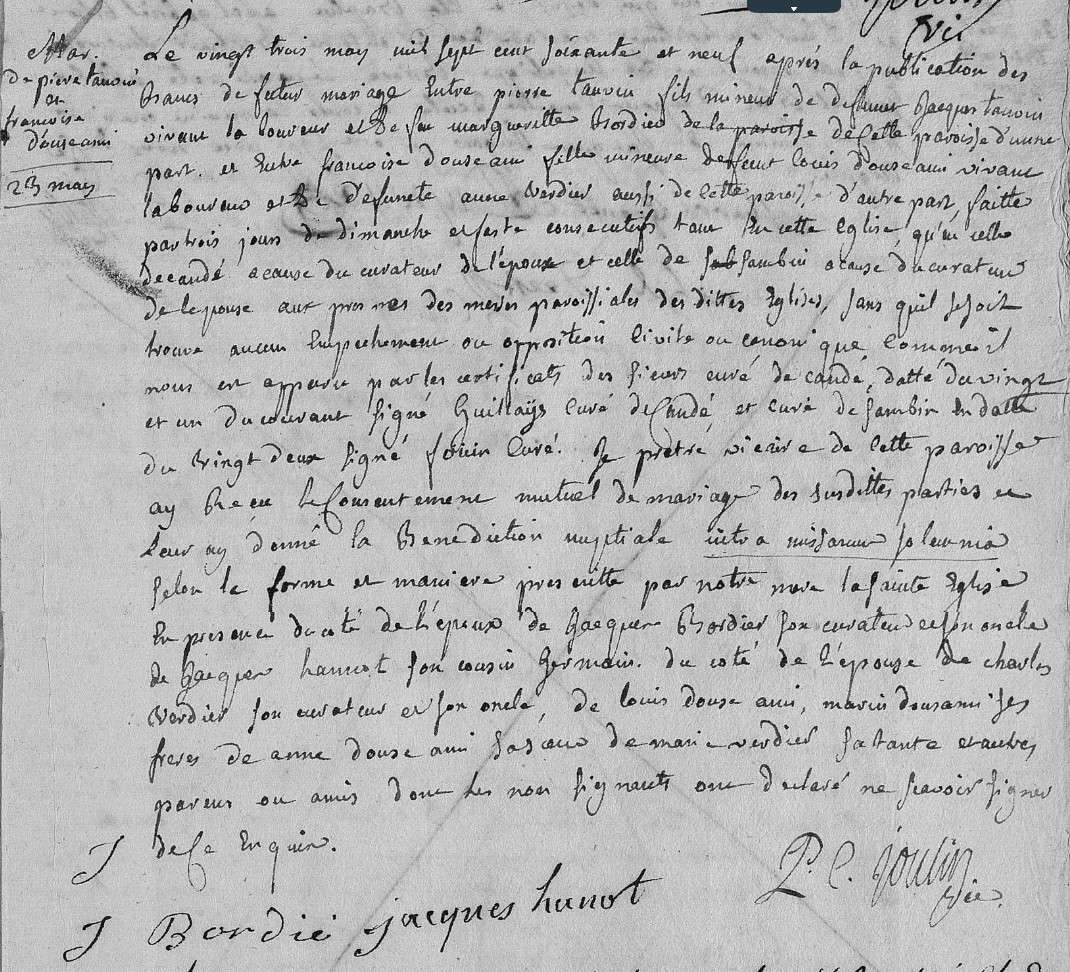 Mar.
de piere tauvin
et
francoise
d'ouseami
23 may
Vic
Le vingt trois may mil sept cent soixante et neuf après la publication des
bancs de futur mariage Entre pierre tauvin fils mineur de defunt Jacques tauvin
vivant laboureur et De feu margueritte Bordier de la paroisse de Cette paroisse d'une
part. et Entre francoise douseami fille mineure de feut Louis D'ouseami vivant
laboureur et De D'efunete anne Verdier aussi de Cette paroisse d'autre part, faitte
par trois jours de dimanche et feste consecutifs tant En cette Eglise, qu'en celle
de candé acause du curateur de l'époux et celle de sambin acause du curateur
de lepouse aux prosnes des meses paroissiales des dittes Eglises, sans quil se soit
trouve aucun Empechement ou opposition Civile ou canonique, Comme il
nous est apparu par les certificats des sieurs curé de candé, datté du vingt
et un du courant signé Guillays Curé de Candé et curé de sambin En datte
du Vingt deux signé Curé. Je pretre vicaire de Cette paroisse
ay Receu le Consentement mutuel de mariage des susdittes parties et
leur ay donné la Benediction nuptiale intra missarum solemnia
selon la forme et maniere prescritte par notre mere la sainte Eglise
En presence du coté de l'époux de Jacques Bordier son curateur et son oncle
de Jacques hannot son cousin Germain. du coté de l'épouse de charles
Verdier son curateur et son oncle, de louis douseami, marin dousami ses
freres de anne douseami sa sœur de marie verdier sa tante et autres
parens ou amis dont les non signants ont declaré ne scavoir signer
de Ce Enquis.
P. C. Joulin
Vic.
J Bordié jacques hunot